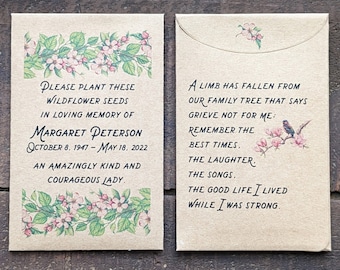 Please plant these
wildflower seeds
in loving memory of
Margaret Peterson
October 8, 1947 – May 18, 2022
an amazingly kind and
courageous lady
A limb has fallen from
our family tree that says
grieve not for me;
remember the
best times,
the laughter,
the songs,
the good life I lived
while I was strong.